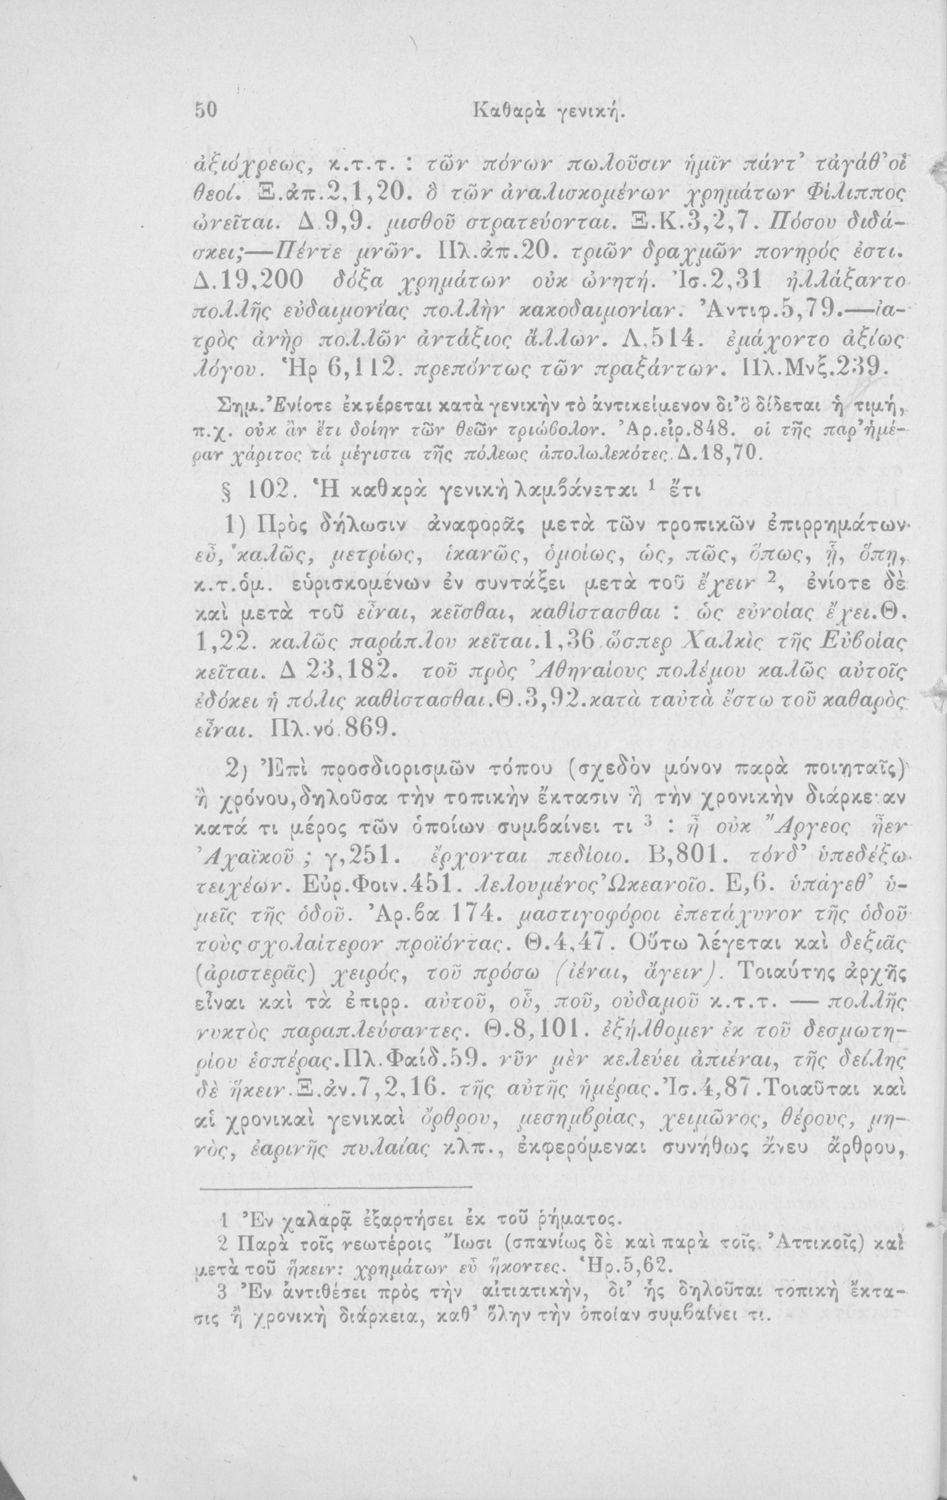 50 Καθαρὰ γενική.
ἀξιόχρεως, κ.τ.τ. : τῶν πόνων πωλοῦσιν ἡμῖν πάντ' τἀγάθ' οἱ
θεοί. Ξ.ἀπ.2,1,20. ὃ τῶν ἀναλισκομένων χρημάτων Φίλιππος
ὠνεῖται. Δ 9,9. μισθοῦ στρατεύονται. Ξ.Κ.3,2,7. Πόσου διδά-
σκει;—Πέντε μνῶν. Πλ.ἀπ.20. τριῶν δραχμῶν πονηρός ἐστι.
Δ.19,200 δόξα χρημάτων οὐκ ὠνητή. Ἰσ.2,31 ἠλλάξαντο
πολλῆς εὐδαιμονίας πολλὴν κακοδαιμονίαν. Ἀντιφ.5,79.—ἰα-
τρὸς ἀνὴρ πολλῶν ἀντάξιος ἄλλων. Λ.514. ἐμάχοντο ἀξίως
λόγου. Ἡρ 6,112. πρεπόντως τῶν πραξάντων. Πλ.Μνξ.239.
Σημ. Ἐνίοτε ἐκφέρεται κατὰ γενικὴν τὸ ἀντικείμενον δι' ὃ δίδεται ἡ τιμή,
π.χ. οὐκ ἂν ἔτι δοίην τῶν θεῶν τριώβολον. Ἀρ.εἰρ.848. οἱ τῆς παρ' ἡμέ-
ραν χάριτος τὰ μέγιστα τῆς πόλεως ἀπολωλεκότες. Δ.18,70.
§ 102. Ἡ καθαρὰ γενικὴ λαμβάνεται ¹ ἔτι
1) Πρὸς δήλωσιν ἀναφορᾶς μετὰ τῶν τροπικῶν ἐπιρρημάτων
εὖ, καλῶς, μετρίως, ἱκανῶς, ὁμοίως, ὡς, πῶς, ὅπως, ᾗ, ὅπῃ,
κ.τ.ὅμ. εὑρισκομένων ἐν συντάξει μετὰ τοῦ ἔχειν ², ἐνίοτε δὲ
καὶ μετὰ τοῦ εἶναι, κεῖσθαι, καθίστασθαι : ὡς εὐνοίας ἔχει.Θ.
1,22. καλῶς παράπλου κεῖται.1,36 ὥσπερ Χαλκὶς τῆς Εὐβοίας
κεῖται. Δ 23,182. τοῦ πρὸς Ἀθηναίους πολέμου καλῶς αὐτοῖς
ἐδόκει ἡ πόλις καθίστασθαι.Θ.3,92.κατὰ ταὐτὰ ἔστω τοῦ καθαρὸς
εἶναι. Πλ.νό.869.
2) Ἐπὶ προσδιορισμῶν τόπου (σχεδὸν μόνον παρὰ ποιηταῖς)
ἢ χρόνου, δηλοῦσα τὴν τοπικὴν ἔκτασιν ἢ τὴν χρονικὴν διάρκειαν
κατά τι μέρος τῶν ὁποίων συμβαίνει τι ³ : ἦ οὐκ Ἄργεος ἦεν
Ἀχαϊκοῦ ; γ,251. ἔρχονται πεδίοιο. Β,801. τόνδ' ὑπεδέξω
τειχέων. Εὐρ.Φοιν.451. λελουμένος Ὠκεανοῖο. Ε,6. ὑπάγεθ' ὑ-
μεῖς τῆς ὁδοῦ. Ἀρ.βα 174. μαστιγοφόροι ἐπετάχυνον τῆς ὁδοῦ
τοὺς σχολαίτερον προϊόντας. Θ.4,47. Οὕτω λέγεται καὶ δεξιᾶς
(ἀριστερᾶς) χειρός, τοῦ πρόσω (ἰέναι, ἄγειν). Τοιαύτης ἀρχῆς
εἶναι καὶ τὰ ἐπιρρ. αὐτοῦ, οὗ, ποῦ, οὐδαμοῦ κ.τ.τ. — πολλῆς
νυκτὸς παραπλεύσαντες. Θ.8,101. ἐξήλθομεν ἐκ τοῦ δεσμωτη-
ρίου ἑσπέρας.Πλ.Φαίδ.59. νῦν μὲν κελεύει ἀπιέναι, τῆς δείλης
δὲ ἥκειν.Ξ.ἀν.7,2,16. τῆς αὐτῆς ἡμέρας. Ἰσ.4,87.Τοιαῦται καὶ
αἱ χρονικαὶ γενικαὶ ὄρθρου, μεσημβρίας, χειμῶνος, θέρους, μη-
νός, ἐαρινῆς πυλαίας κλπ., ἐκφερόμεναι συνήθως ἄνευ ἄρθρου,
1 Ἐν χαλαρᾷ ἐξαρτήσει ἐκ τοῦ ῥήματος.
2 Παρὰ τοῖς νεωτέροις Ἴωσι (σπανίως δὲ καὶ παρὰ τοῖς Ἀττικοῖς) καὶ
μετὰ τοῦ ἥκειν: χρημάτων εὖ ἥκοντες. Ἡρ.5,62.
3 Ἐν ἀντιθέσει πρὸς τὴν αἰτιατικήν, δι' ἧς δηλοῦται τοπικὴ ἔκτα-
σις ἢ χρονικὴ διάρκεια, καθ' ὅλην τὴν ὁποίαν συμβαίνει τι.